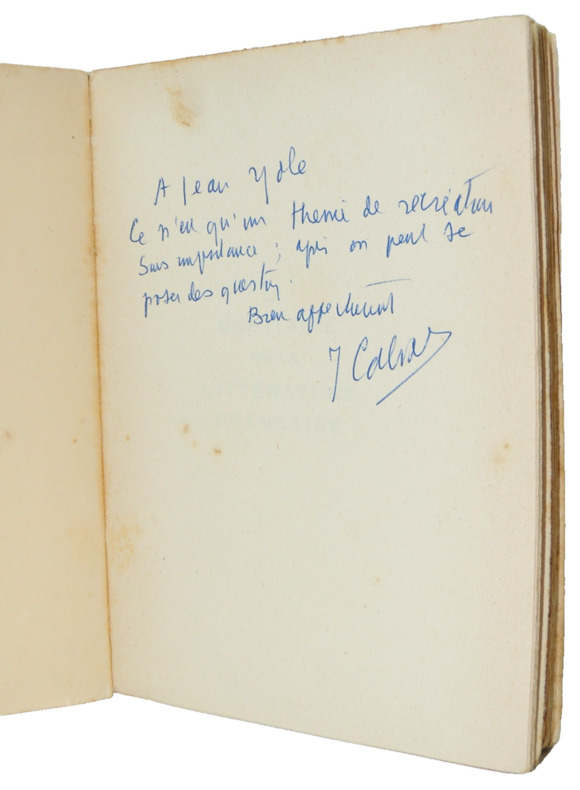 A Jean Yole
Ce n'est qu'un thème de récréation
Sans importance ; après on peut se
poser des questions.
Bien affectueusement
J Calvet